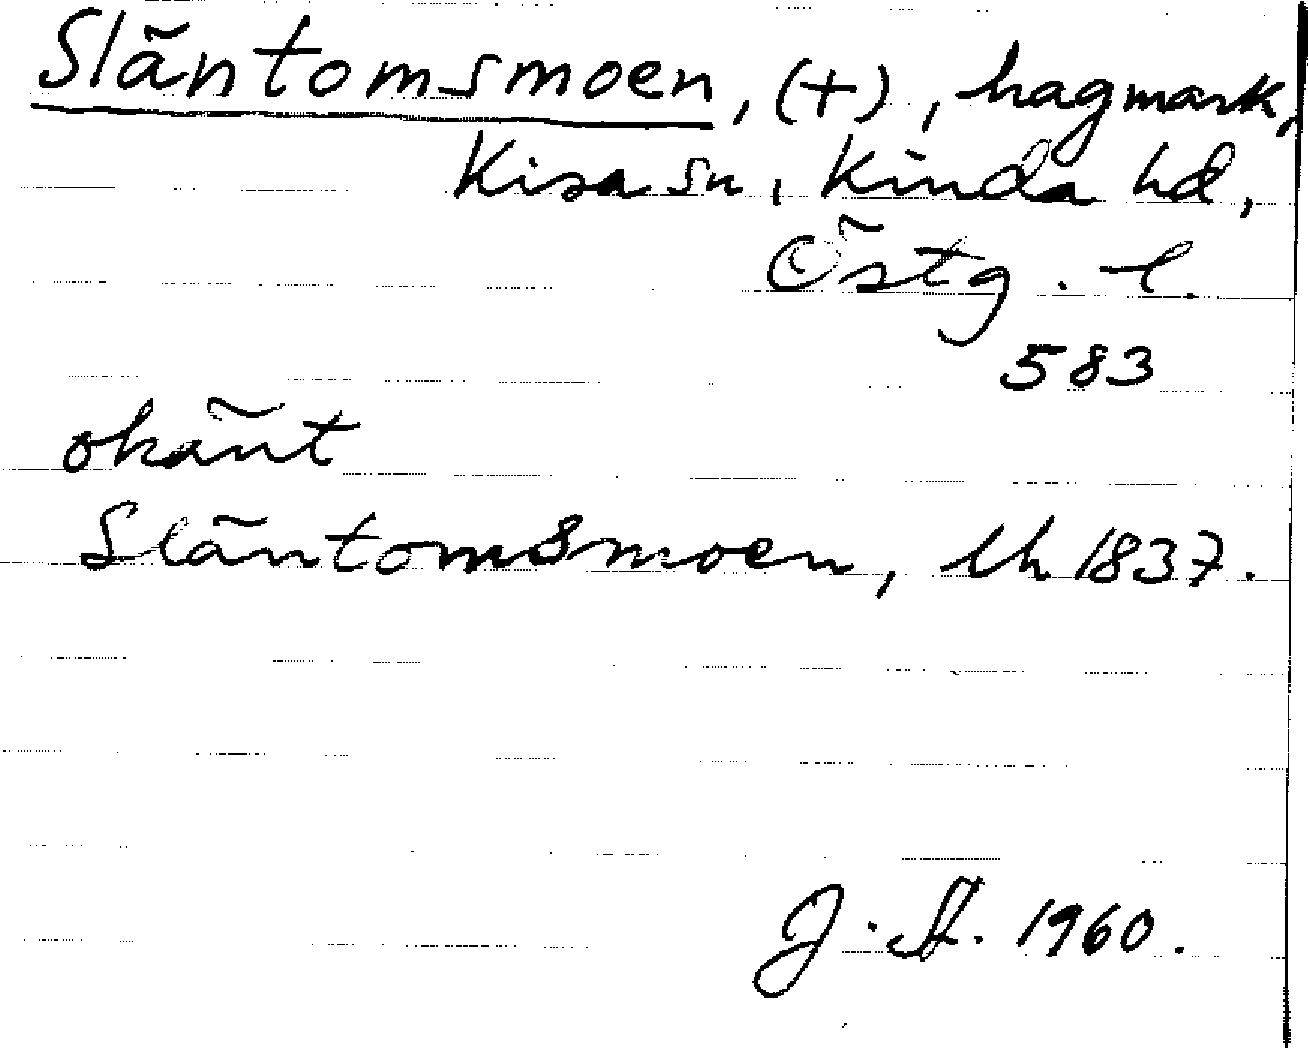 Släntomsmoen, (+), hagmark,
Kisa sn, Kinda hd,
Östg. l.
583
okänt
Släntomsmoen, lh 1837.
J. A. 1960.